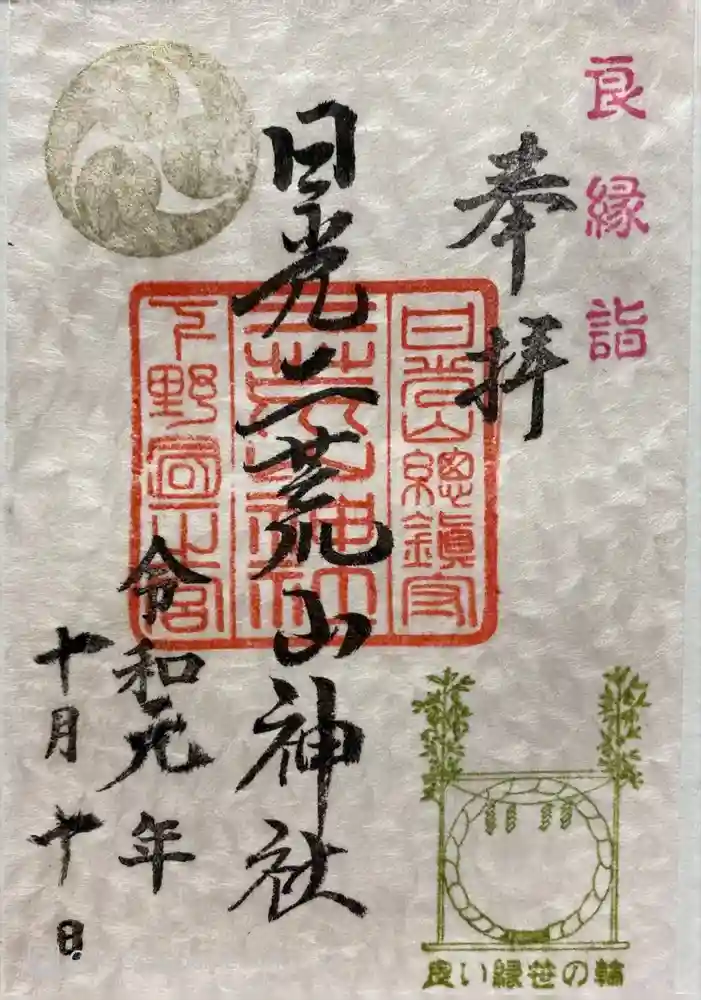 良縁詣
奉拝
日光山總鎮守
二荒山神社
下野國一之宮
日光二荒山神社
令和元年
十月十日
良い縁笹の輪